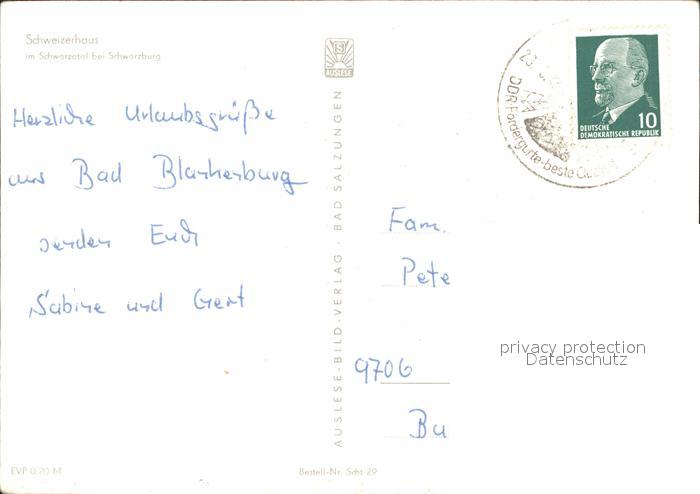 Schweizerhaus
im Schwarzatal bei Schwarzburg
Herzliche Urlaubsgrüße
aus Bad Blankenburg
senden Euch
Sabine und Gert
EVP 0,20 M
AUSLESE
AUSLESE-BILD-VERLAG · BAD SALZUNGEN
Bestell-Nr. Scht 29
DDR Fördergurte-beste
10
DEUTSCHE
DEMOKRATISCHE REPUBLIK
Fam.
Pete
9706
Bu
privacy protection
Datenschutz